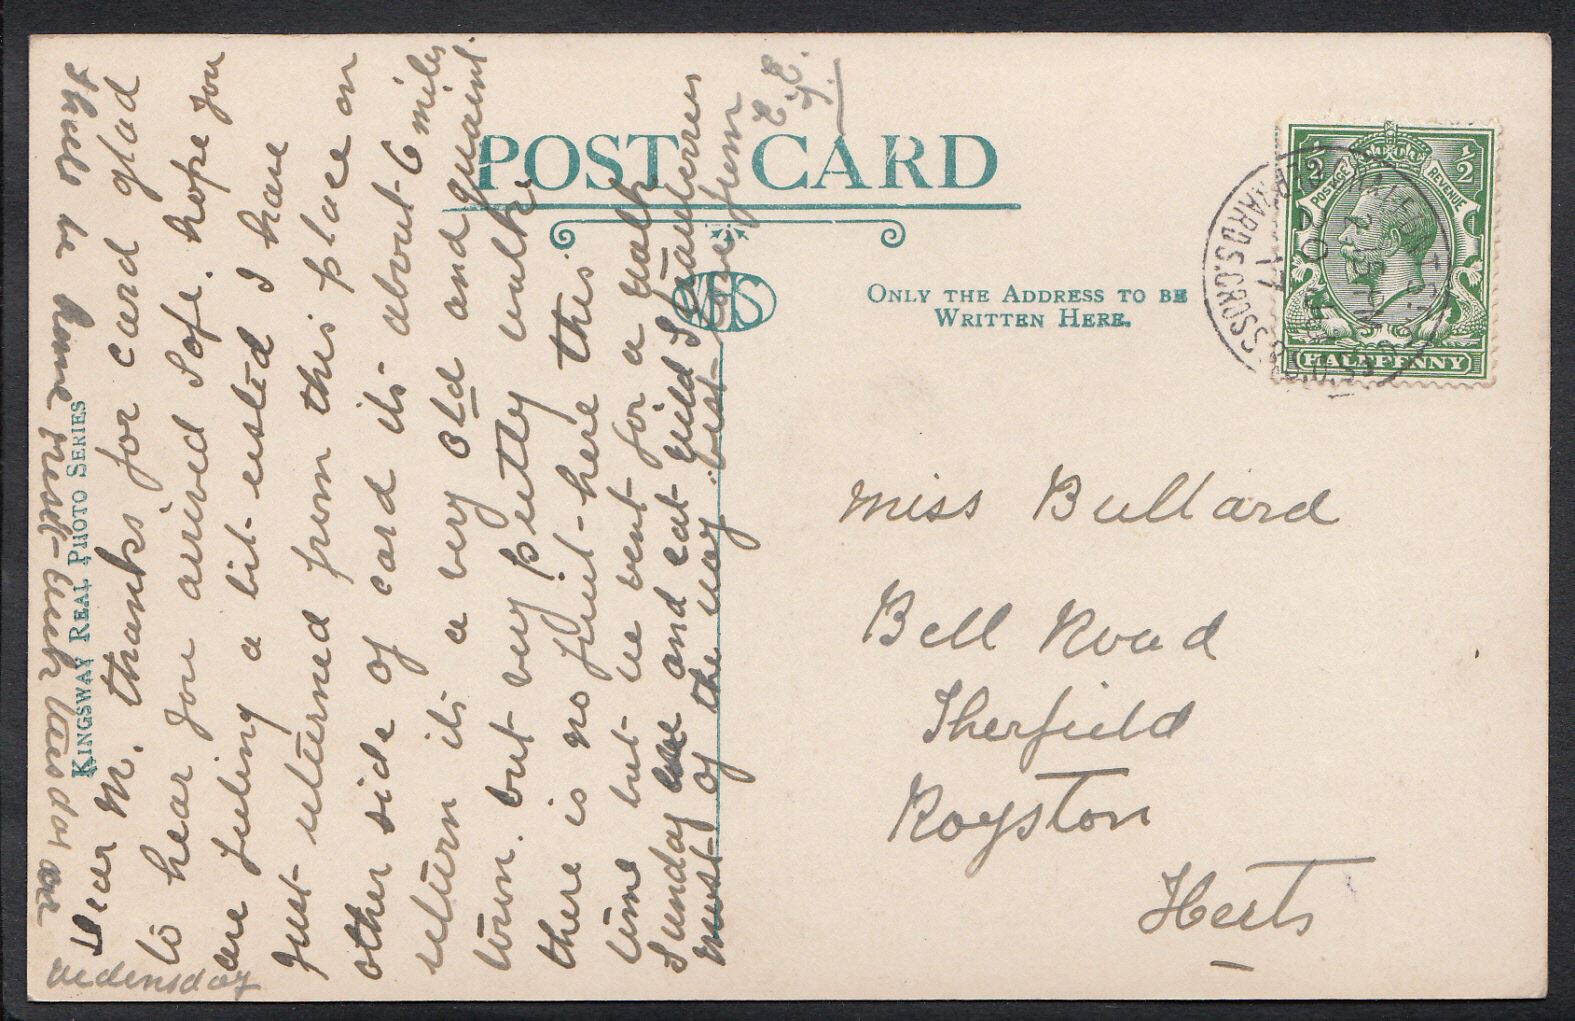 POST CARD
WHS
ONLY THE ADDRESS TO BE
WRITTEN HERE.
KINGSWAY REAL PHOTO SERIES
½ ½
POSTAGE REVENUE
HALFPENNY
WARDS.CROSS
Miss Bullard
Bell Road
Therfield
Royston
Herts
Wedensday
Dear M. thanks for card glad
to hear you arived Safe. hope you
are feeling a bit rested I have
just returned from this place on
other side of card its about 6 miles
return its a very old and quaint
town. but very pretty walk
there is no fruit here this
time but we went for a walk
Sunday and eat wild Strawberries
most of the way. best love from
E. E.
shall be home